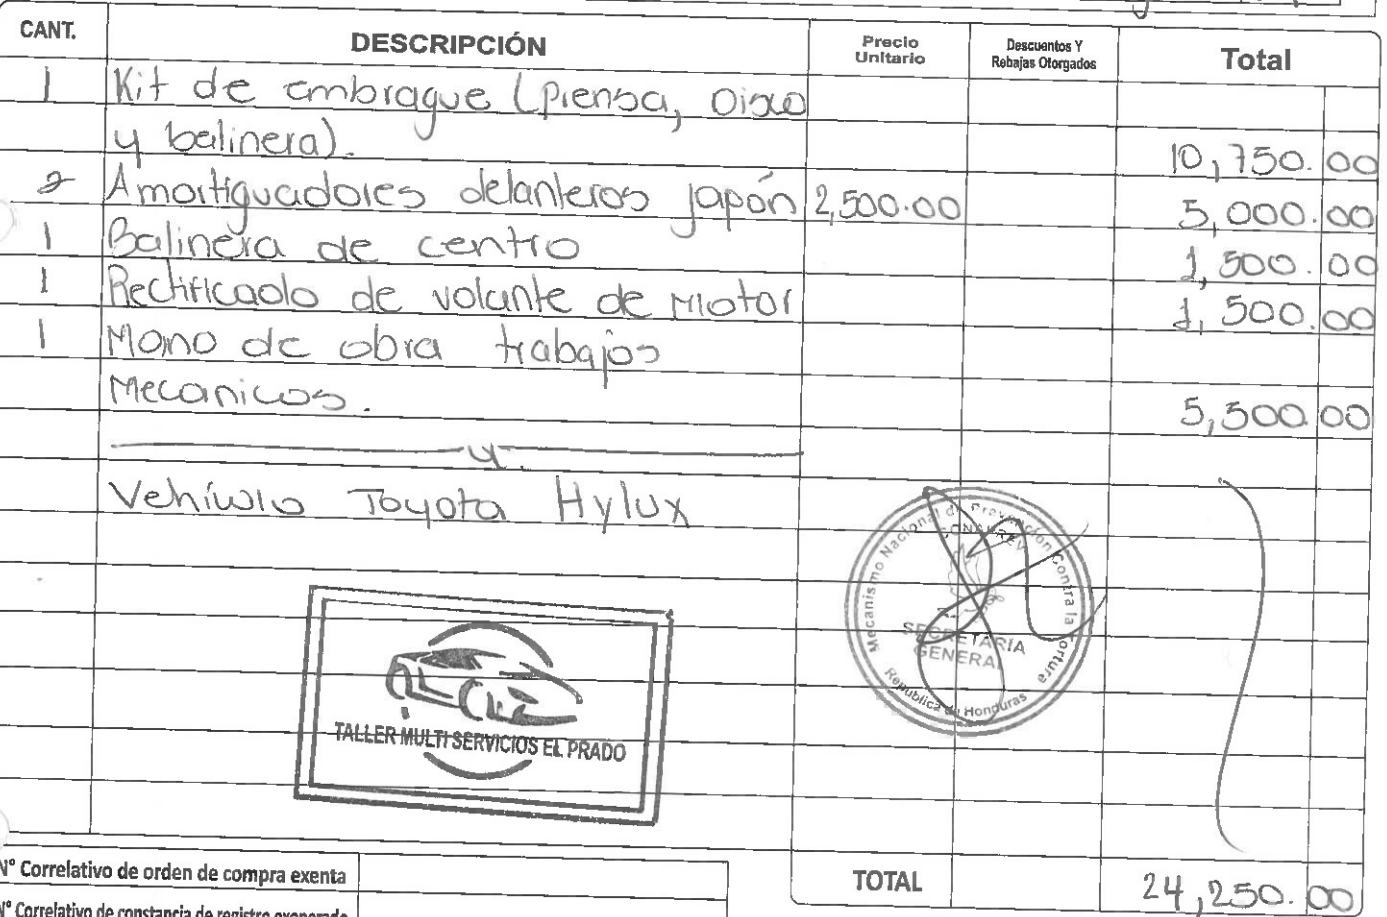 CANT. DESCRIPCIÓN Precio Unitario Descuentos Y Rebajas Otorgados Total
1 Kit de embrague (prensa, Disco
y balinera). 10,750.00
2 Amortiguadores delanteros japón 2,500.00 5,000.00
1 Balinera de centro 1,500.00
1 Rectificado de volante de Motor 1,500.00
1 Mano de obra trabajos
Mecanicos. 5,500.00
Vehículo Toyota Hylux
Mecanismo Nacional de Prevención Contra la Tortura
CONAPREV
SECRETARIA
GENERAL
Republica de Honduras
TALLER MULTI SERVICIOS EL PRADO
N° Correlativo de orden de compra exenta
TOTAL 24,250.00
N° Correlativo de constancia de registro exonerado